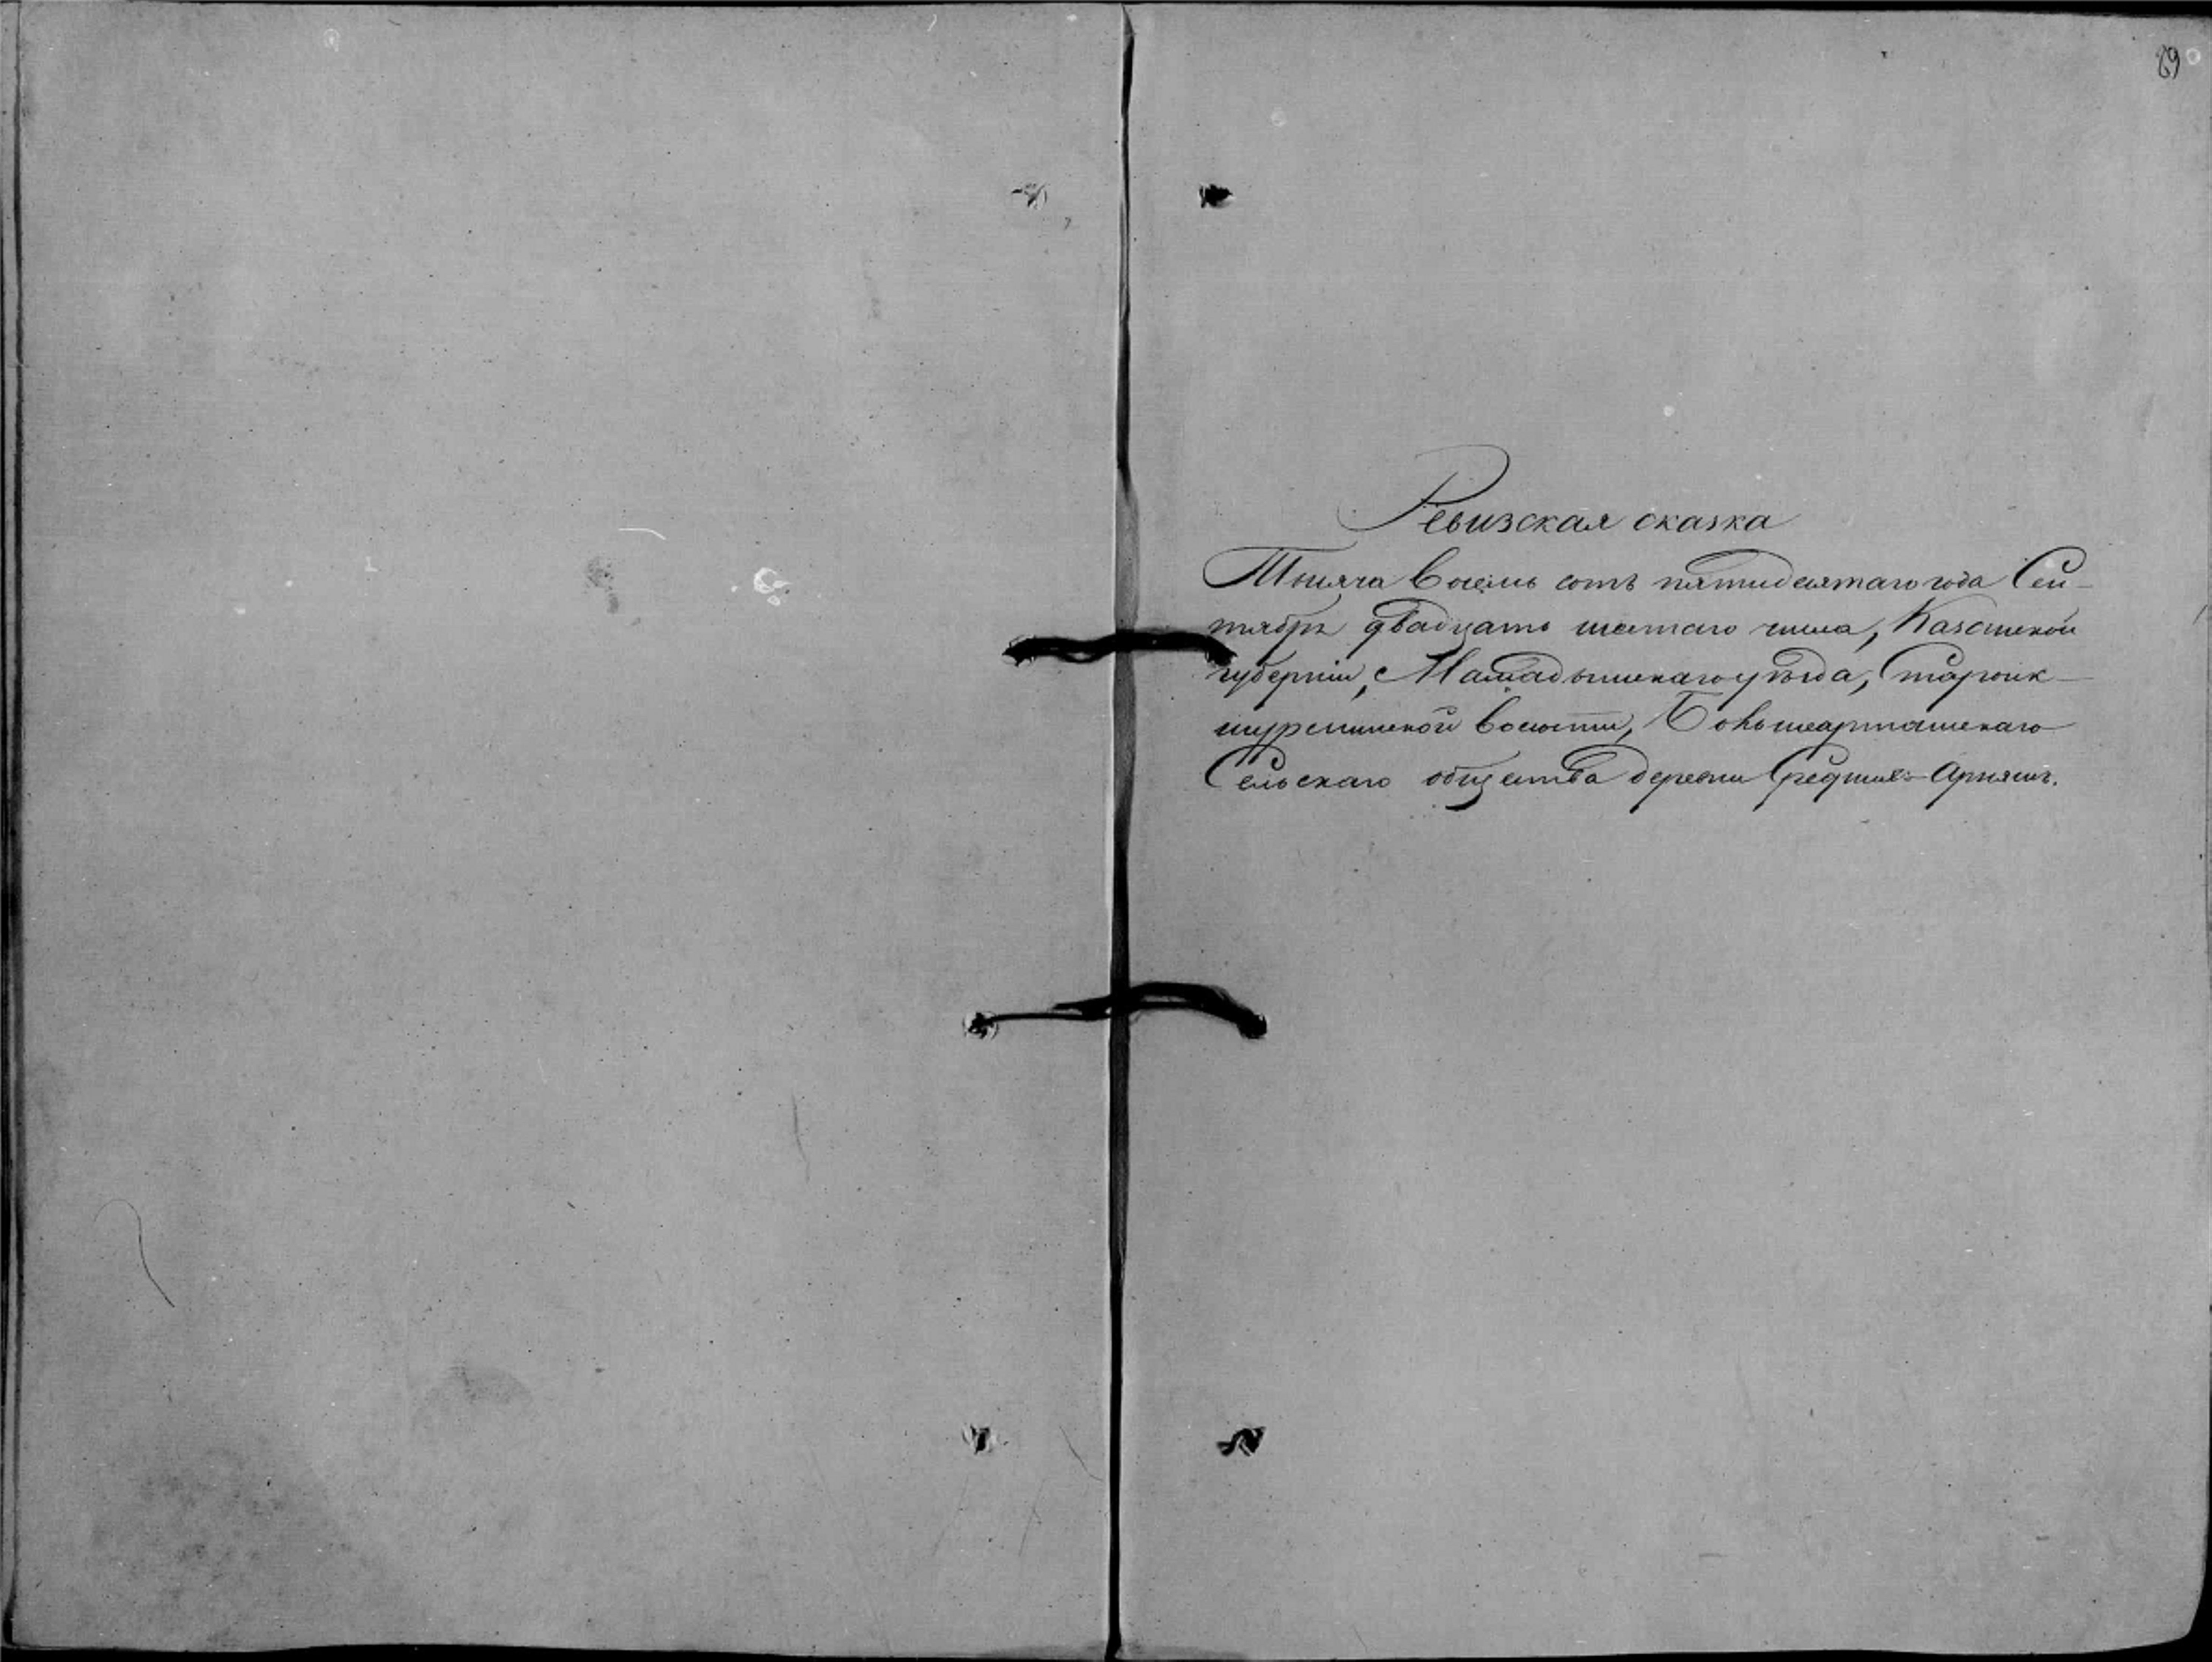 89
Ревизская сказка
Тысяча восемь сотъ пятидесятаго года Сен-
тября двадцать шестаго числа, Казанской
губерніи, Мамадышскаго уѣзда, Староик-
шурминской волости, Большеарташскаго
Сельскаго общества деревни Среднихъ-Арняшъ.